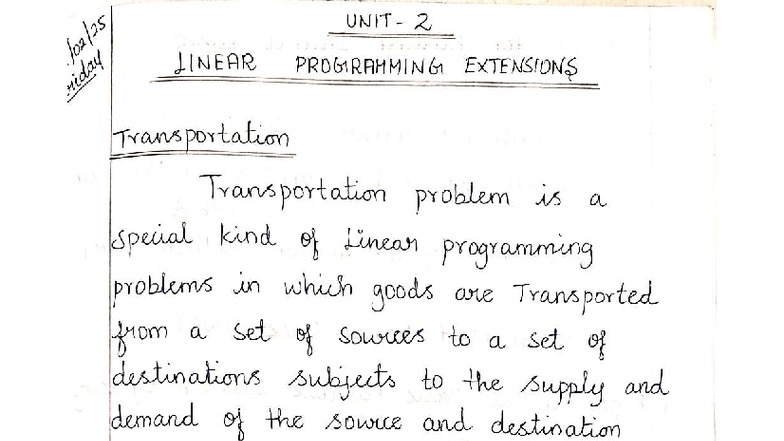 UNIT - 2
/02/25
LINEAR PROGRAMMING EXTENSIONS
Transportation
Transportation problem is a
special kind of Linear programming
problems in which goods are Transported
from a set of sources to a set of
destinations subjects to the supply and
demand of the source and destination